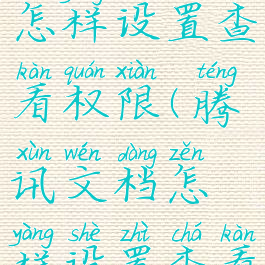 怎样设置查
kàn quán xiàn téng
看权限(腾
xùn wén dàng zěn
讯文档怎
yàng shè zhì chá kàn
样设置查看